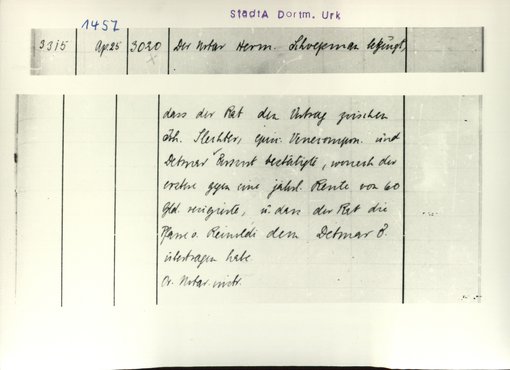 StadtA Dortm. Urk
1457
3315 Apr. 25 3020 Der Notar Herm. bezeugt,
dass der Rat den Vertrag zwischen
Joh. und
Detmar bestätigte, wonach der
erstere gegen eine jährl. Rente von 60
Gld. resignierte, u. dass der Rat die
Pfarre s. Reinoldi dem Detmar B.
übertragen habe
Or. Notar. instr.